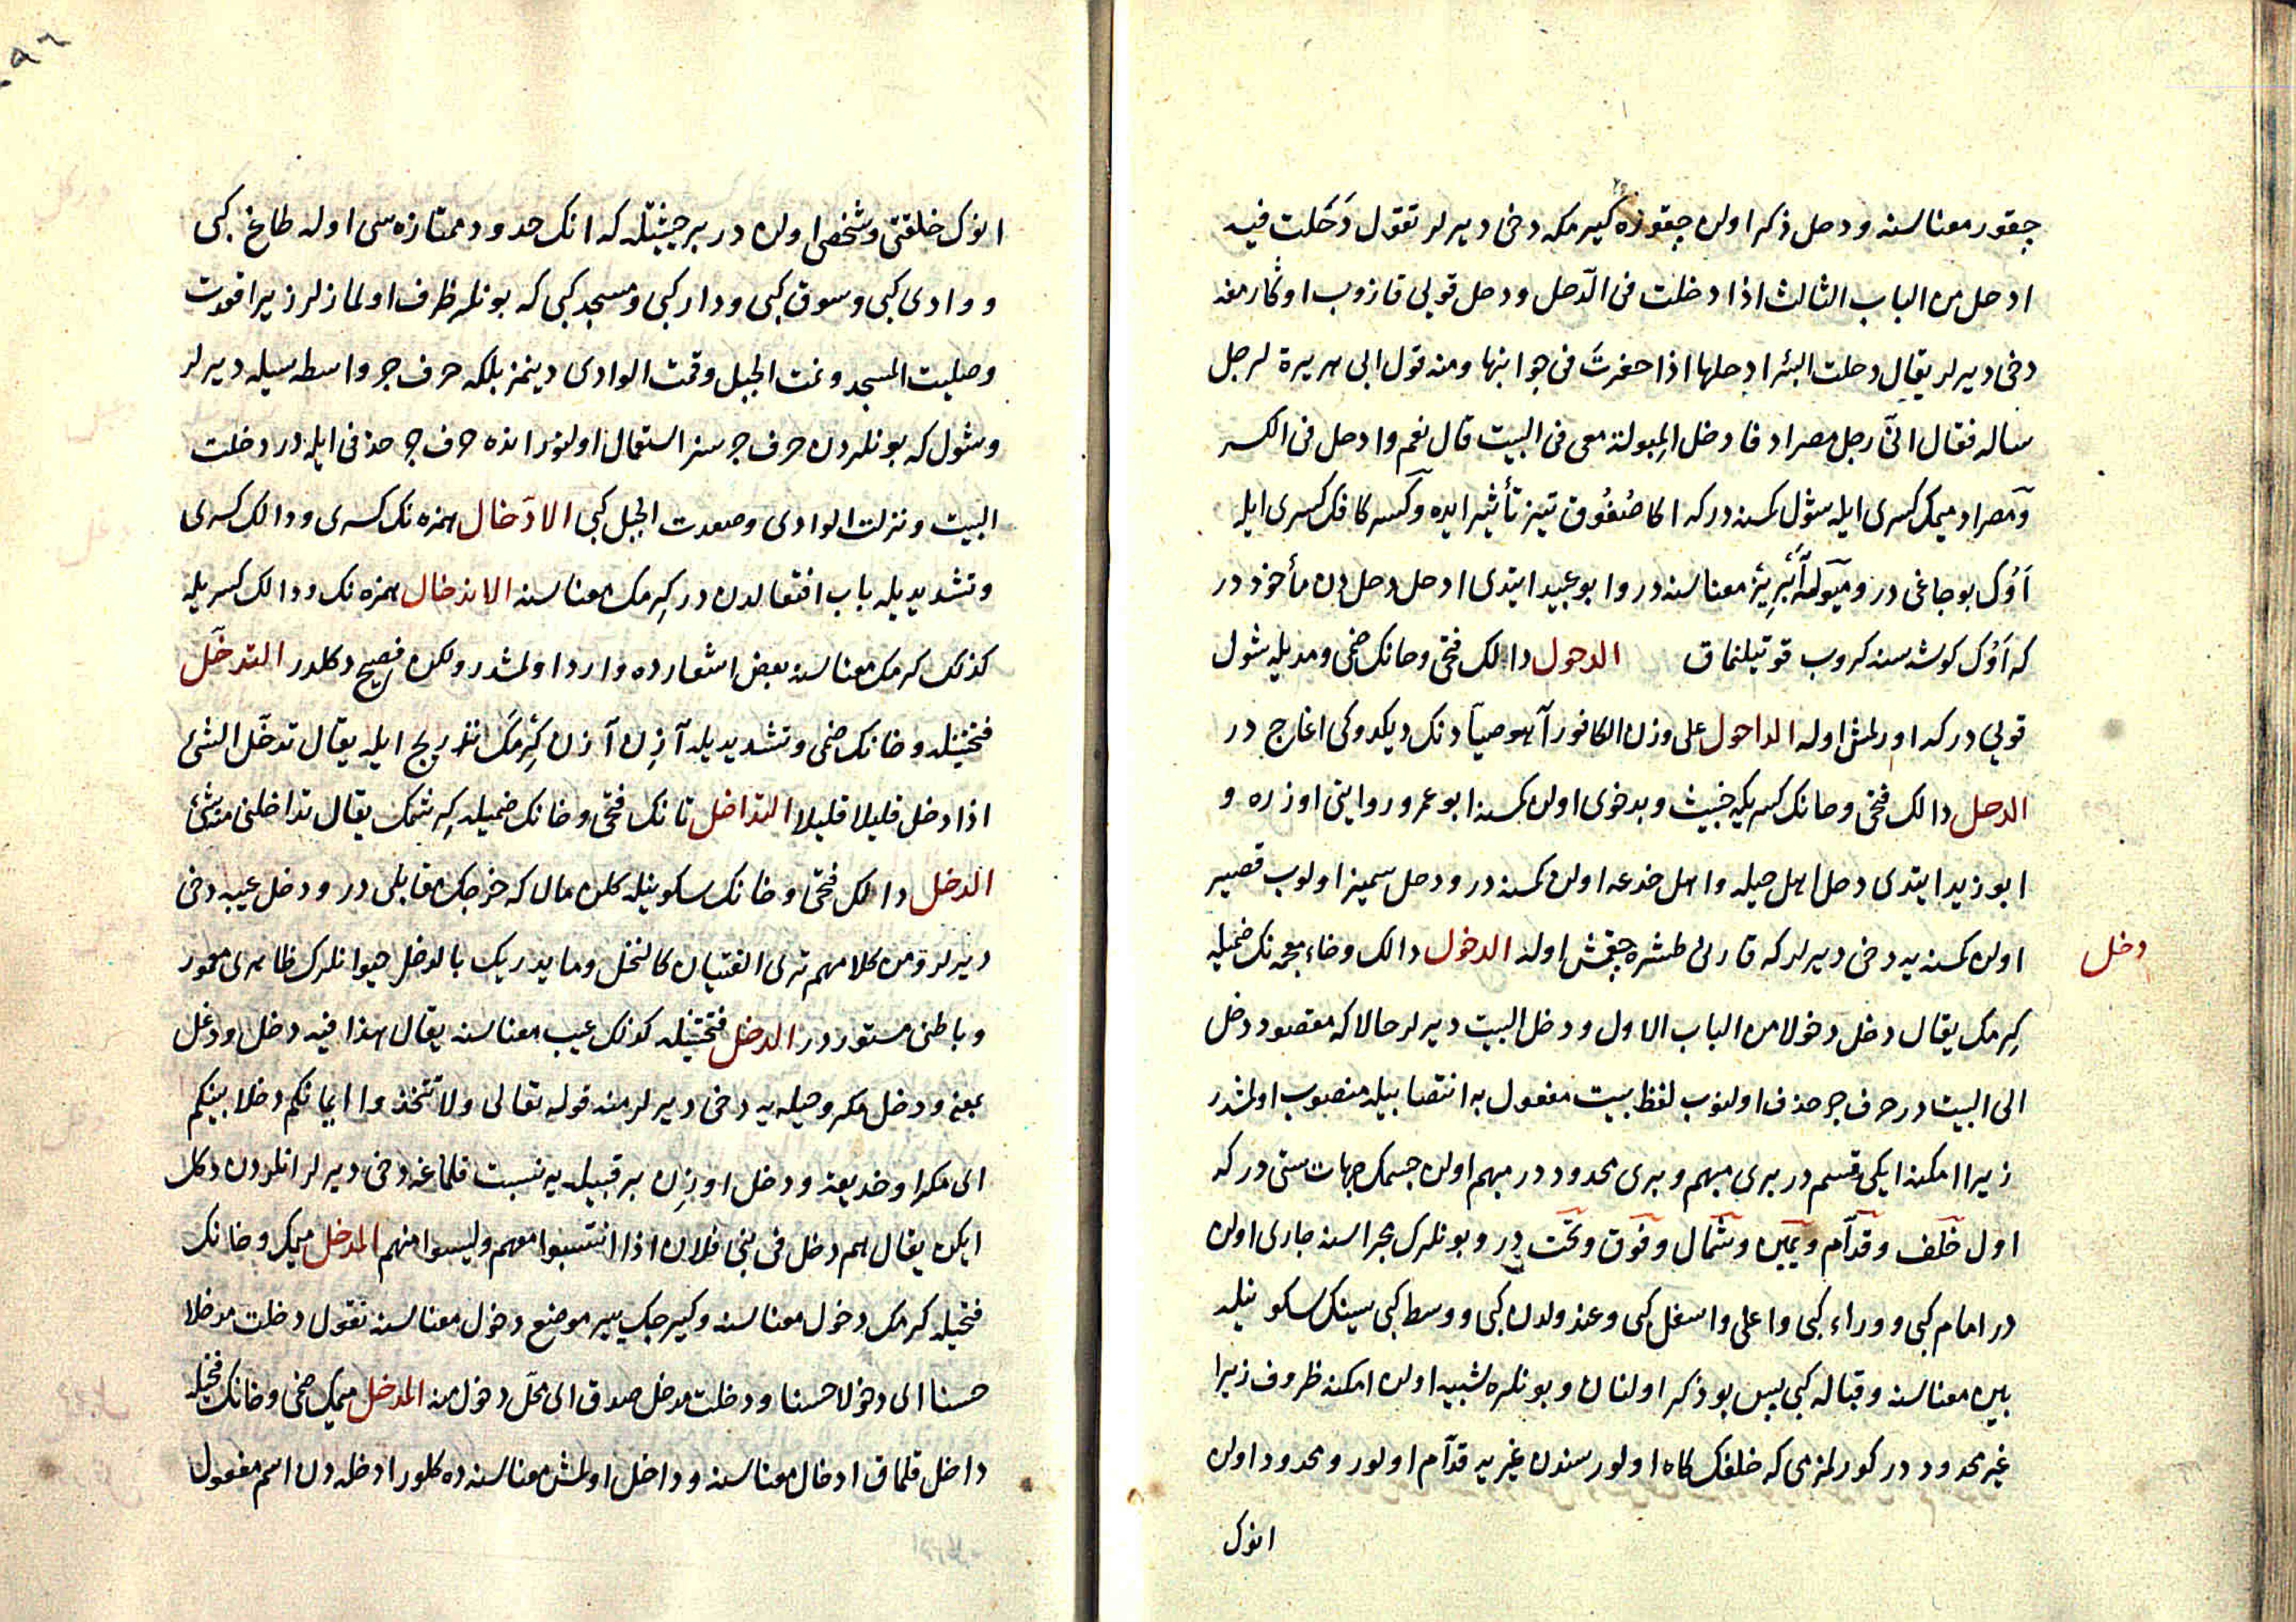 چقور معناسنه و دحل ذكر اولن چقوره كيرمكه دخی ديرلر تقول دَحَلت فيه
ادحل من الباب الثالث اذا دخلت فی الدّحل و دحل قویی قازوب اوكارمغه
دخی ديرلر يقال دحلت البئر ادحلها اذا حفرتَ فی جوانبها ومنه قول ابی هريرة لرجل
ساله فقال انّی رجل مصراد فادخل المِبولة معی فی البيت قال نعم وادحل فی الكسر
ومصراد ميمك كسری ايله شول كمسنه دركه اكا صُغُوق تيز تأثير ايده وكسر كافك كسری ايله
اَوُك بوجاغی در ومبوله ابريز معناسنه در وابو عبيد ايتدی ادحل دحل دن مأخوذ در
كه اَوُك كوشه سنه كروب قوتيلنماق الدحول دالك فتحی وحانك ضمی ومديله شول
قویی دركه اورلمش اوله الداحول علی وزن الكافور آهو صيّادنك ديكدوكی اغاج در
الدحل دالك فتحی وحانك كسريله خبيث وبدخوی اولن كمسنه ابو عمرو روايتی اوزره و
ابو زيد ايتدی دحل اهل حيله واهل خدعه اولن كمسنه در ودحل سميز اولوب قصير
اولن كمسنه يه دخی ديرلر كه قارنی طشره چقمش اوله الدخول دالك وخاء معجمه نك ضميله
دخل
كِرمك يقال دخل دخولا من الباب الاول ودخل البيت ديرلر حالا كه مقصود دخل
الی البيت در حرف جر حذف اولنوب لفظ بيت مفعول به انتصابيله منصوب اولمشدر
زيرا امكنه ايكی قسم در بری مبهم وبری محدود در مبهم اولن جسمك جهات ستی دركه
اول خلف وقدّام ويمين وشمال وفوق وتحت در وبونلرك مجراسنه جاری اولن
در امام كبی ووراء كبی واعلی واسفل كبی وعند ولدن كبی ووسط كبی سينك سكونيله
بين معناسنه وقباله كبی پس بو ذكر اولنان وبونلره شبيه اولن امكنه ظروف زيرا
غير محدود در كورلمزمی كه خلفك كاه اولور سندن غيريه قدّام اولور ومحدود اولن
انوك
انوك خلقتی وشخصی اولن در بر حيثيتله كه انك حدود ممتازه سی اوله طاغ كبی
و وادی كبی وسوق كبی ودار كبی ومسجد كبی كه بونلر ظرف اولمازلر زيرا قعدت
وصليت المسجد ونمت الجبل وقمت الوادی دينمز بلكه حرف جر واسطه سيله ديرلر
وشول كه بونلردن حرف جر سز استعمال اولنور انده حرف جر حذفی ايله در دخلت
البيت ونزلت الوادی وصعدت الجبل كبی الادّخال همزه نك كسری ودالك كسری
وتشديديله باب افتعالدن در كِرمك معناسنه الاندخال همزه نك ودالك كسريله
كذلك كرمك معناسنه بعض اشعارده وارد اولمشدر ولكن فصيح دكلدر التدخّل
فتحتينله وخانك ضمی وتشديديله آزِن آزن كِرمَك تدريج ايله يقال تدخّل الشئ
اذا دخل قليلا قليلا التداخل تانك فتحی وخانك ضميله كِرشمك يقال تداخلنی منه شئ
الدخل دالك فتحی وخانك سكونيله كلن مال كه خرجك مقابلی در ودخل عيبه دخی
ديرلر ومن كلامهم تری الفتيان كالنخل وما يدريك بالدخل جوانلرك ظاهری معمور
وباطنی مستور در الدخل فتحتينله كذلك عيب معناسنه يقال هذا فيه دخل ودغل
بمعنی ودخل مكر وحيله يه دخی ديرلر منه قوله تعالی ولا تتخذوا ايمانكم دخلا بينكم
ای مكرا وخديعة ودخل اوزِن بر قبيله يه نسبت قلماغه دخی ديرلر انلردن دكل
ايكن يقال هم دخل فی بنی فلان اذا انتسبوا معهم وليسوا منهم المدخل ميمك وخانك
فتحيله كرمك دخول معناسنه وكيرجك يير موضع دخول معناسنه تقول دخلت مدخلا
حسنا ای دخولا حسنا ودخلت مدخل صدق ای محلّ دخول منه المدخل ميمك ضمی وخانك فتحيله
داخل قلماق ادخال معناسنه وداخل اولمش معناسنه ده كلور ادخله دن اسم مفعول